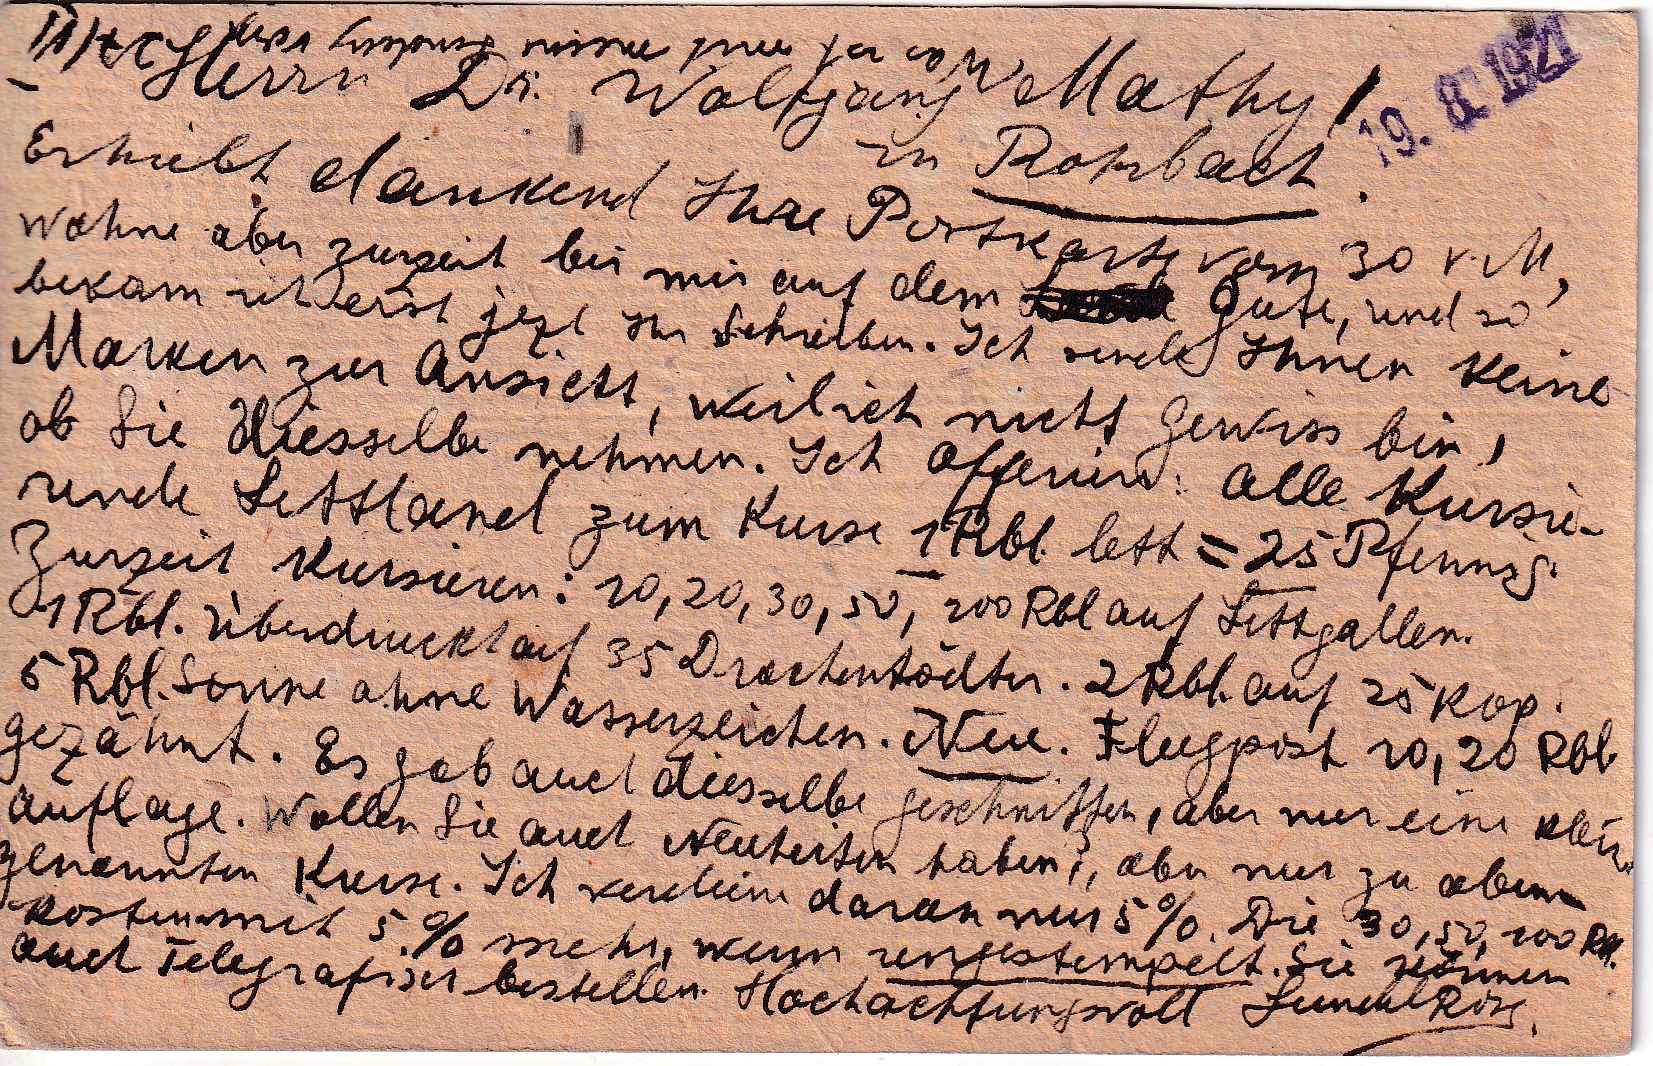 Herrn Dr. Wolfgang Mathy!
19. 8. 1921
in Rohrbach.
Erhielt dankend Ihre Postkarte vom 30 v. M,
wohne aber zurzeit bei mir auf dem Gute, und so
bekam ich erst jezt Ihr Schreiben. Ich sende Ihnen keine
Marken zur Ansicht, weil ich nicht gewiss bin,
ob Sie diesselbe nehmen. Ich offeriere: alle Kursie-
rende Lettland zum Kurse 1 Rbl. lett = 25 Pfennig.
Zurzeit kursieren: 10, 20, 30, 50, 100 Rbl auf Lettgallen.
1 Rbl. Überdruckt auf 35 Drachentödter. 2 Rbl. auf 25 kop.
5 Rbl. Sonne ohne Wasserzeichen. Neu. Flugpost 10, 20 Rbl
gezähnt. Es gab auch diesselbe geschnitten, aber nur eine kleine
auflage. Wollen Sie auch Neuheiten haben, aber nur zu oben
genannten Kurse. Ich verdiene daran nur 5%. Die 30, 50, 100 Rbl.
kosten mit 5% mehr, wenn ungestempelt. Sie können
auch Telegrafisch bestellen. Hochachtungsvoll